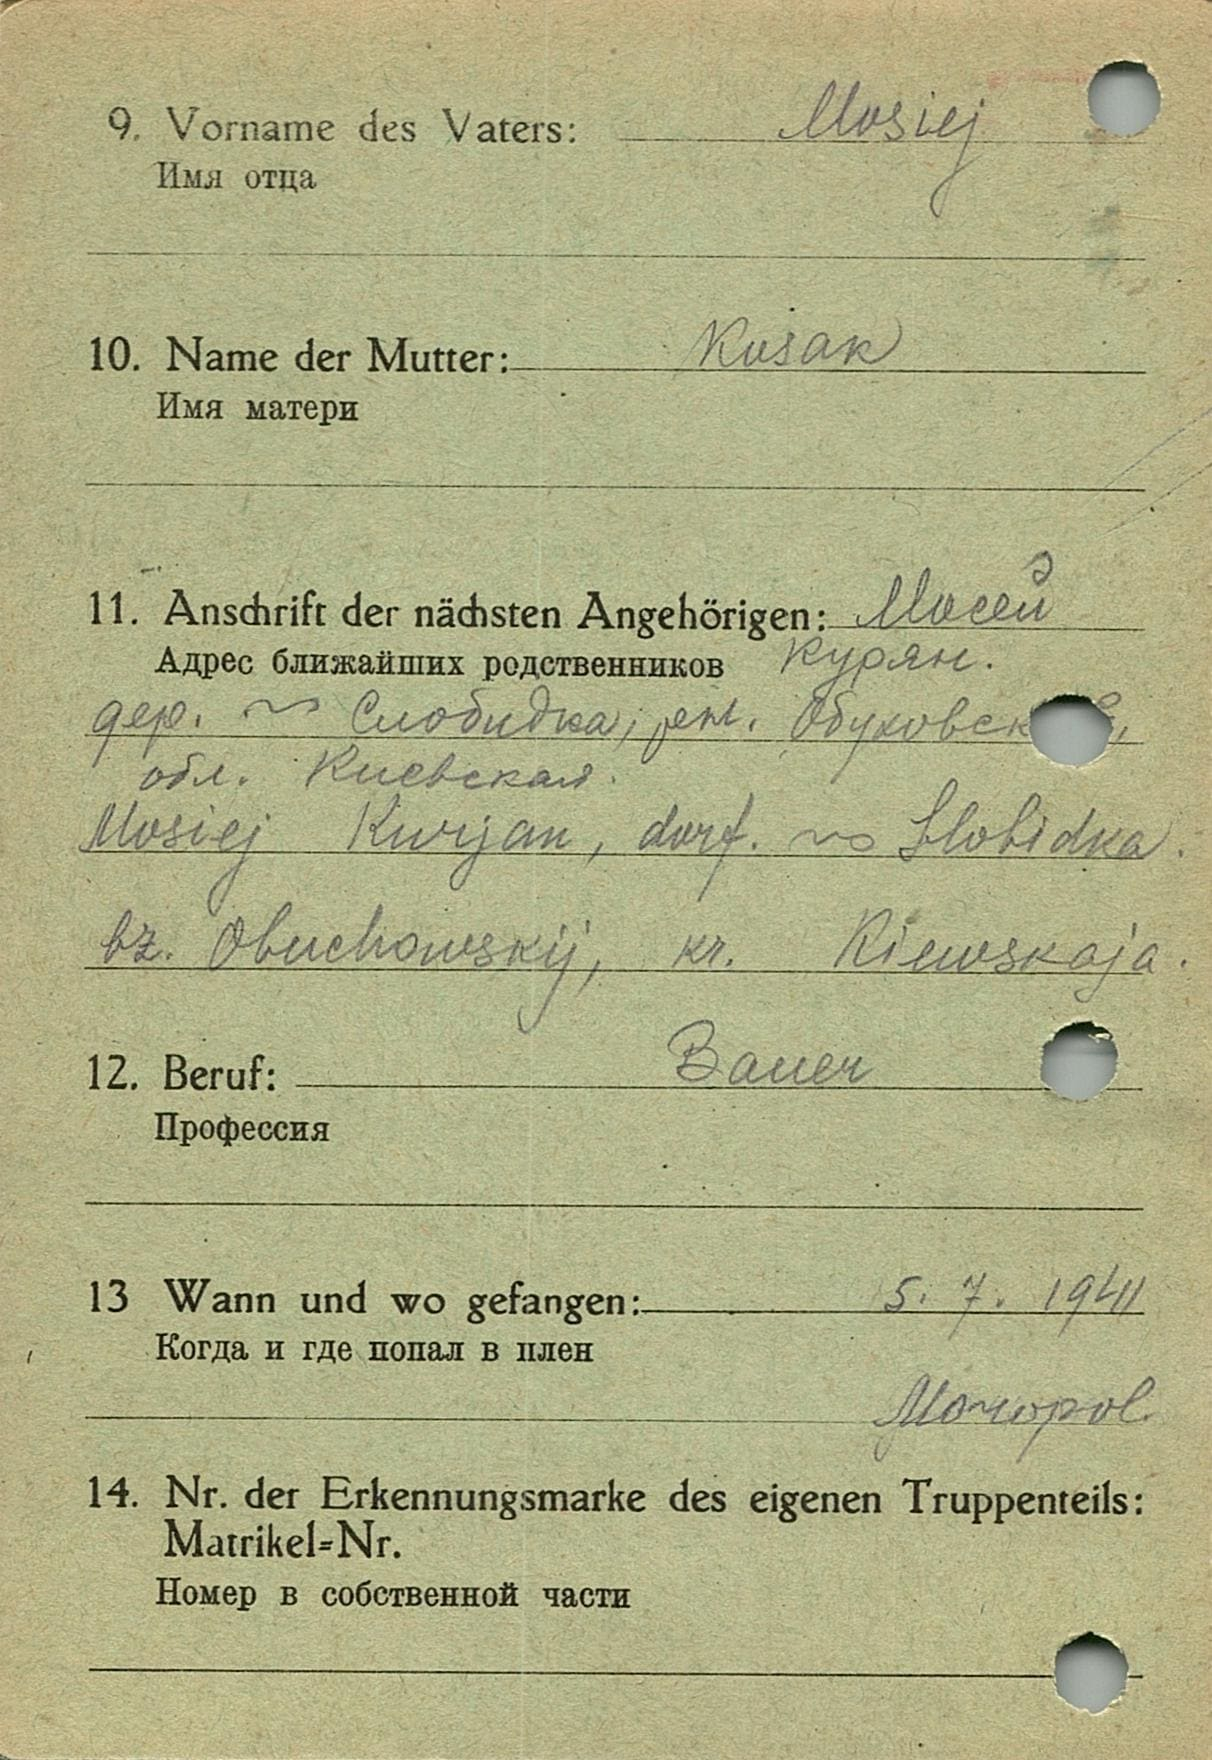 9. Vorname des Vaters: Mosiej
Имя отца
10. Name der Mutter: Kusak
Имя матери
11. Anschrift der nächsten Angehörigen: Мосей
Адрес ближайших родственников Курян.
дер. Слобидка, Обуховск
обл. Киевская.
Mosiej Kurjan, dorf. Slobidka.
bz. Obuchowskij, kr. Kiewskaja.
12. Beruf: Bauer
Профессия
13 Wann und wo gefangen: 5. 7. 1941
Когда и где попал в плен
14. Nr. der Erkennungsmarke des eigenen Truppenteils:
Matrikel=Nr.
Номер в собственной части